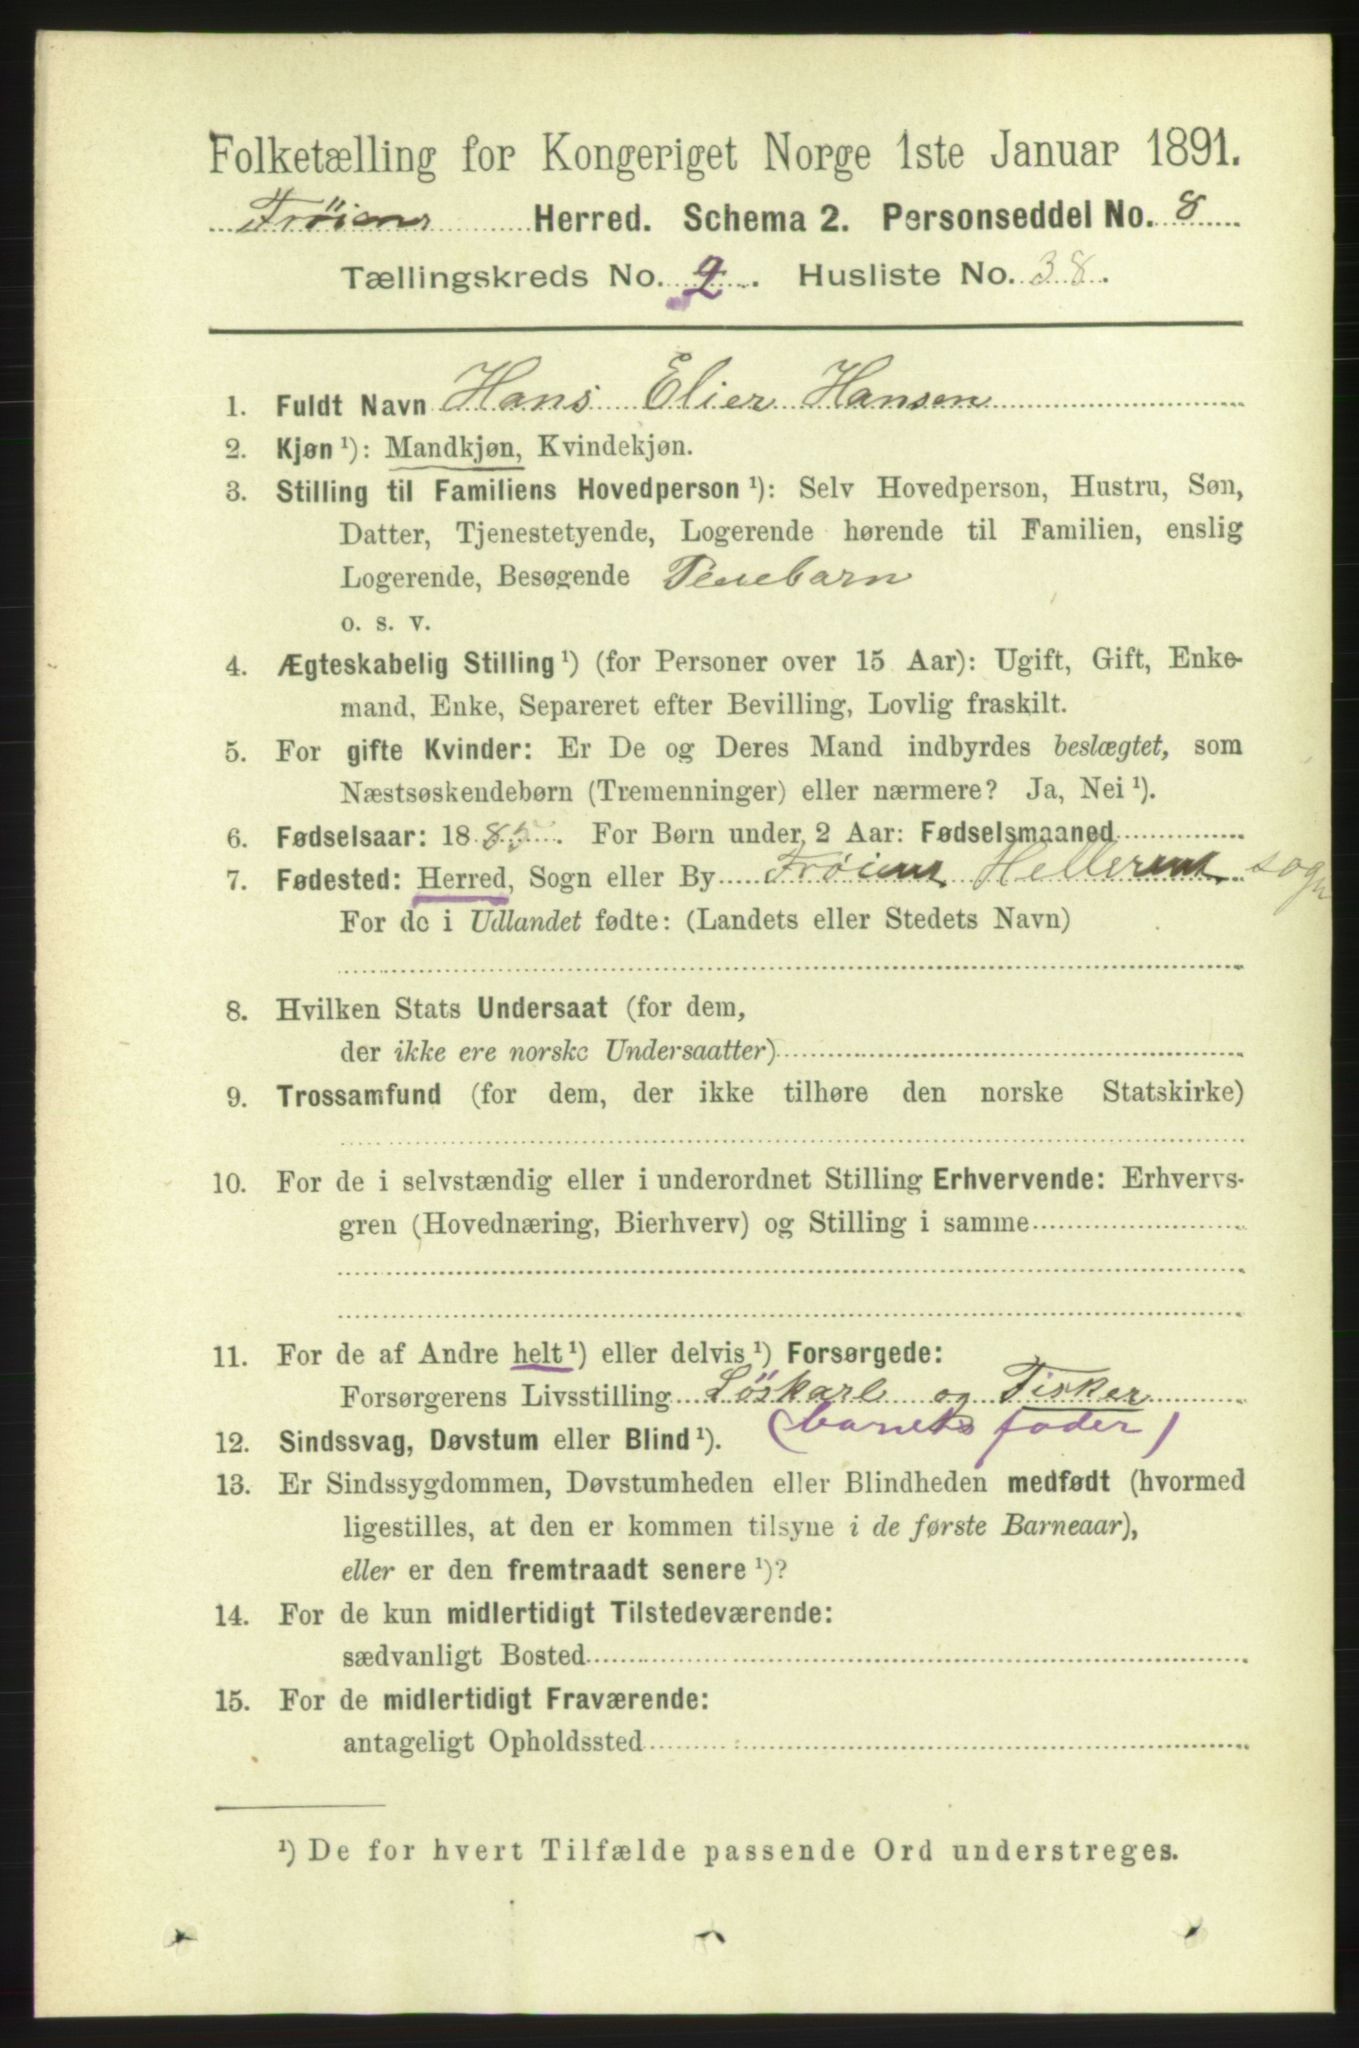 Folketælling for Kongeriget Norge 1ste Januar 1891.
Frøiens Herred. Schema 2. Personseddel No. 8
Tællingskreds No. 2. Husliste No. 38.
1. Fuldt Navn Hans Elier Hansen
2. Kjøn ¹): Mandkjøn, Kvindekjøn.
3. Stilling til Familiens Hovedperson ¹): Selv Hovedperson, Hustru, Søn,
Datter, Tjenestetyende, Logerende hørende til Familien, enslig
Logerende, Besøgende Pleiebarn
o. s. v.
4. Ægteskabelig Stilling ¹) (for Personer over 15 Aar): Ugift, Gift, Enke-
mand, Enke, Separeret efter Bevilling, Lovlig fraskilt.
5. For gifte Kvinder: Er De og Deres Mand indbyrdes beslægtet, som
Næstsøskendebørn (Tremenninger) eller nærmere? Ja, Nei ¹).
6. Fødselsaar: 1885. For Børn under 2 Aar: Fødselsmaaned
7. Fødested: Herred, Sogn eller By Frøiens sogn
For de i Udlandet fødte: (Landets eller Stedets Navn)
8. Hvilken Stats Undersaat (for dem,
der ikke ere norske Undersaatter)
9. Trossamfund (for dem, der ikke tilhøre den norske Statskirke)
10. For de i selvstændig eller i underordnet Stilling Erhvervende: Erhvervs-
gren (Hovednæring, Bierhverv) og Stilling i samme
11. For de af Andre helt ¹) eller delvis ¹) Forsørgede:
Forsørgerens Livsstilling Löskarl og Fisker
(barnets fader)
12. Sindssvag, Døvstum eller Blind ¹).
13. Er Sindssygdommen, Døvstumheden eller Blindheden medfødt (hvormed
ligestilles, at den er kommen tilsyne i de første Barneaar),
eller er den fremtraadt senere ¹)?
14. For de kun midlertidigt Tilstedeværende:
sædvanligt Bosted
15. For de midlertidigt Fraværende:
antageligt Opholdssted
¹) De for hvert Tilfælde passende Ord understreges.